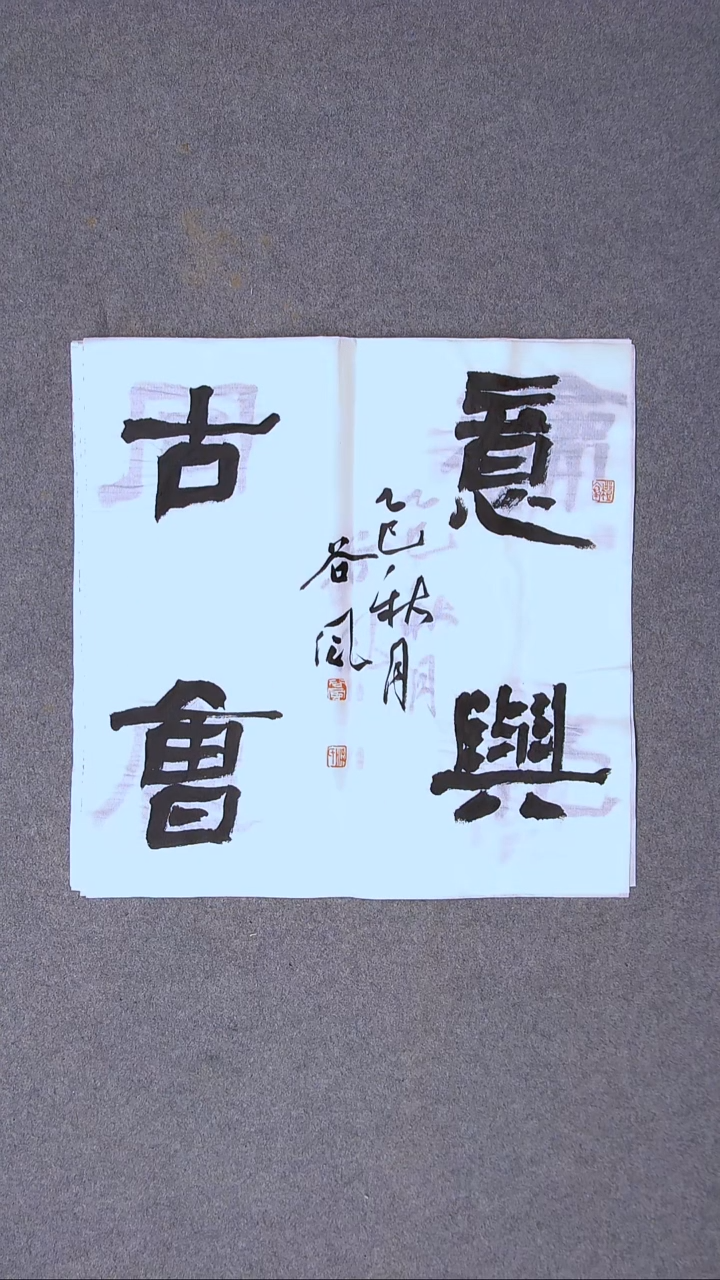 意與
古會
乙巳秋月
谷風